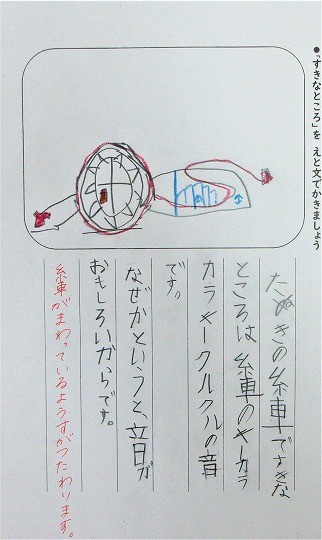 ●「すきなところ」を えと文でかきましょう
たぬきの糸車ですきな
ところは糸車のキーカラ
カラキークルクルの音
です。
なぜかというと、音が
おもしろいからです。
糸車がまわっているようすがつたわります。